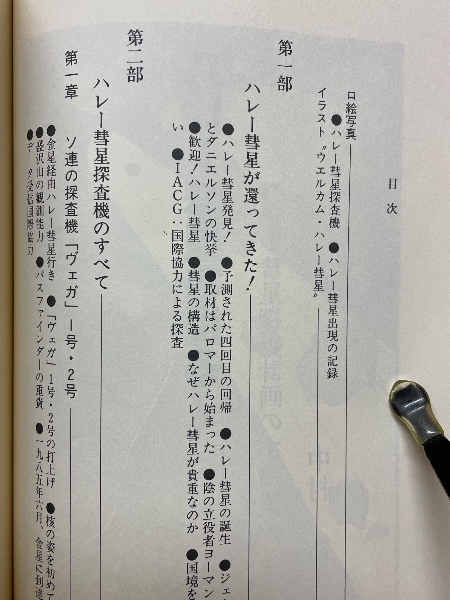 目次
口絵写真
●ハレー彗星探査機 ●ハレー彗星出現の記録
イラスト〝ウエルカム・ハレー彗星〟
第一部
ハレー彗星が還ってきた！
●ハレー彗星発見！ ●予測された四回目の回帰 ●ハレー彗星の誕生 ●ジェ
とダニエルソンの快挙 ●取材はパロマーから始まった ●陰の立役者ヨーマン
●歓迎！ハレー彗星 ●彗星の構造 ●なぜハレー彗星が貴重なのか ●国境を
い ●IACG：国際協力による探査
第二部
ハレー彗星探査機のすべて
第一章 ソ連の探査機「ヴェガ」一号・２号
●金星経由ハレー彗星行き ●「ヴェガ」１号・２号の打上げ ●核の姿を初めて
●盛沢山の観測能力 ●パスファインダーの重責 ●一九八五年六月、金星に到達